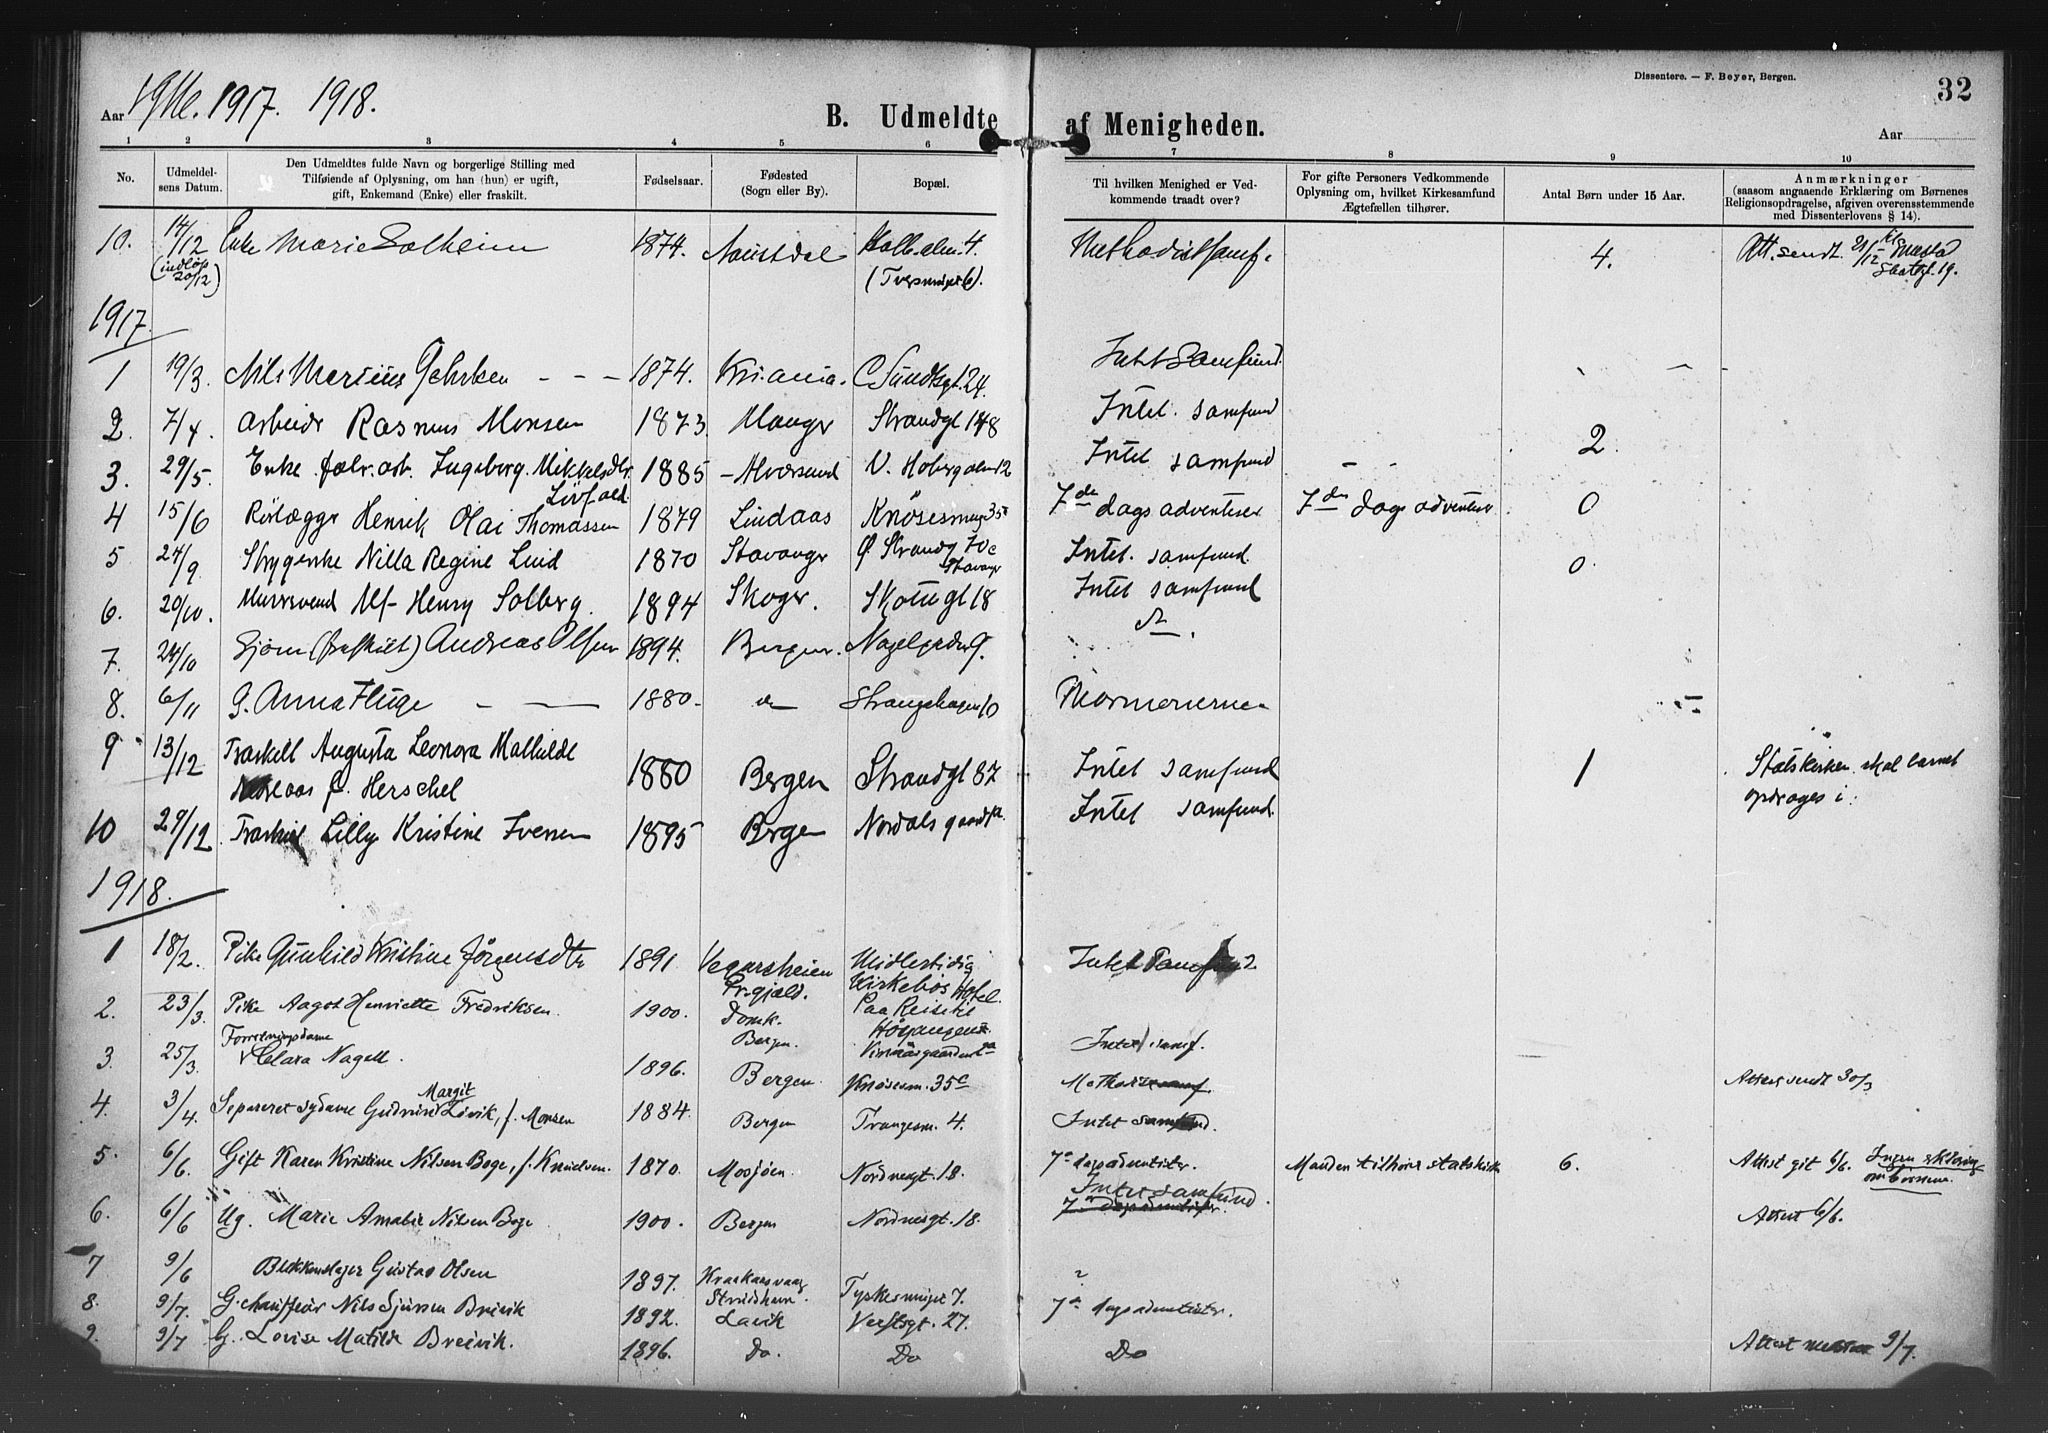 Dissentere. — F. Beyer, Bergen.
32
Aar 1916. 1917. 1918.
B. Udmeldte af Menigheden.
Aar
1 2 3 4 5 6 7 8 9 10
No.
Udmeldelsens Datum.
Den Udmeldtes fulde Navn og borgerlige Stilling med
Tilføiende af Oplysning, om han (hun) er ugift,
gift, Enkemand (Enke) eller fraskilt.
Fødselsaar.
Fødested
(Sogn eller By).
Bopæl.
Til hvilken Menighed er Ved-
kommende traadt over?
For gifte Personers Vedkommende
Oplysning om, hvilket Kirkesamfund
Ægtefællen tilhører.
Antal Børn under 15 Aar.
Anmærkninger
(saasom angaaende Erklæring om Børnenes
Religionsopdragelse, afgiven overensstemmende
med Dissenterlovens § 14).
10. 14/12 (indløp 20/12) Enke Marie Solheim 1874. Naustdal 4. Methodistsamf. 4. Att. sendt 21/12
1917.
1 19/3. Nils Marius Gehrken - - - 1874. Kristiania. C Sundtsgt. 24. Intet Samfund.
2. 7/4. Arbeidr Rasmus Monsen 1873. Manger Strandgt 148 Intet. samfund
3. 29/5. Enke fabr. arb. Ingeborg Mikkelsdtr. 1885 Alversund Intet samfund - - 2.
4 15/6 Rørlæggr Henrik Olai Thomassen 1879 Lindaas Knøsesmug 35 7de dags adventist 7de dags adventist 0
5 24/9 Strygerske Nilla Regine Lind 1870 Stavangr Ø. Strandg 70c Stavangr Intet. samfund. 0.
6. 20/10. Murersvend Alf Henry Solberg. 1894 Skoger. Skotugt 18 Intet samfund
7. 24/10 Sjøm (fraskilt) Andreas Olsen 1894. Bergen. 9.
8. 6/11 G. Anna Fluge - — 1880. do Strangehagen 10 Mormonerne
9 13/12 Fraskilt Augusta Leonora Mathilde
f. Herschel 1880 Bergen Strandgt 87 Intet samfund 1 Statskirken skal barnet
opdrages i.
10 29/12 Fraskilt Lilly Kristine Iversen 1895 Bergen Intet samfund.
1918.
1 18/2. Pike Gunhild Kristine Jørgensdtr 1891 Vegarsheien Midlertidig
Kirkebøs Hotel. Intet Samfund
2. 23/3. Pike Aagot Henriette Fredriksen 1900. Domk.
Bergen. Intet samf.
3. 25/3. Forretningsdame
Clara Nagell. 1896. Bergen. Knøsesm. 35c Attest sendt 30/3
4. 3/4. Separeret sydame Gudrun Margit Løvik, f. Monsen 1884. Bergen Trangesm. 4. Intet samfund.
5. 6/6. Gift Karen Kristine Nilsen Boge, f. Knudsen. 1870. Mosjøen Nordnesgt. 18. 7e dagsadventistr. Manden tilhører statskirk 6. Attest git 6/6. Ingen erklæring
om børnene.
6. 6/6 Ug. Marie Amalie Nilsen Boge 1900. Bergen Nordnesgt. 18. Intet samfund. Attest 6/6.
7 9/6 Blikkenslager Gustav Olsen 1897. Kraakaasvaag
Tyskesmuget 7. ?
8. 9/7. G. chauffeur Nils Sjursen Breivik 1892. Lavik Verftsgt. 27. 7e dagsadventistr.
9. 9/7 G. Lovise Matilde Breivik. 1896. Do. Do Do Attest 9/7.